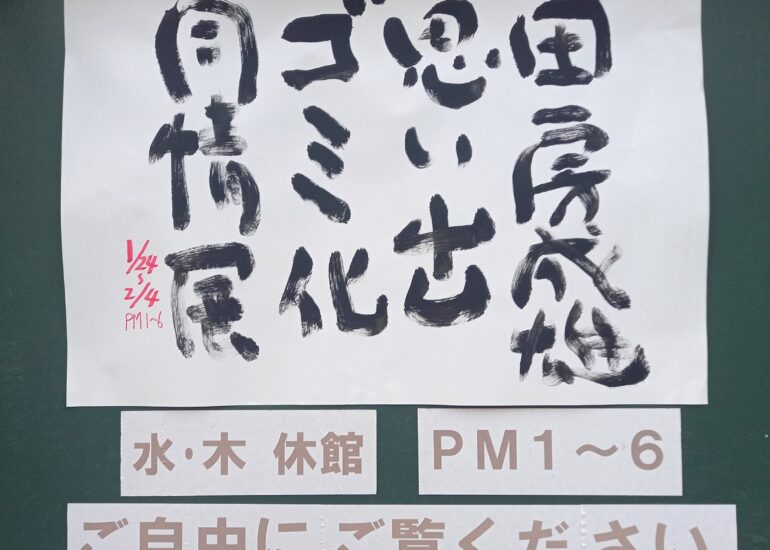 田房成
思い出
ゴミ化
同情展
1/24
〜
2/4
PM1~6
水・木 休館
PM1～6
ご自由にご覧ください